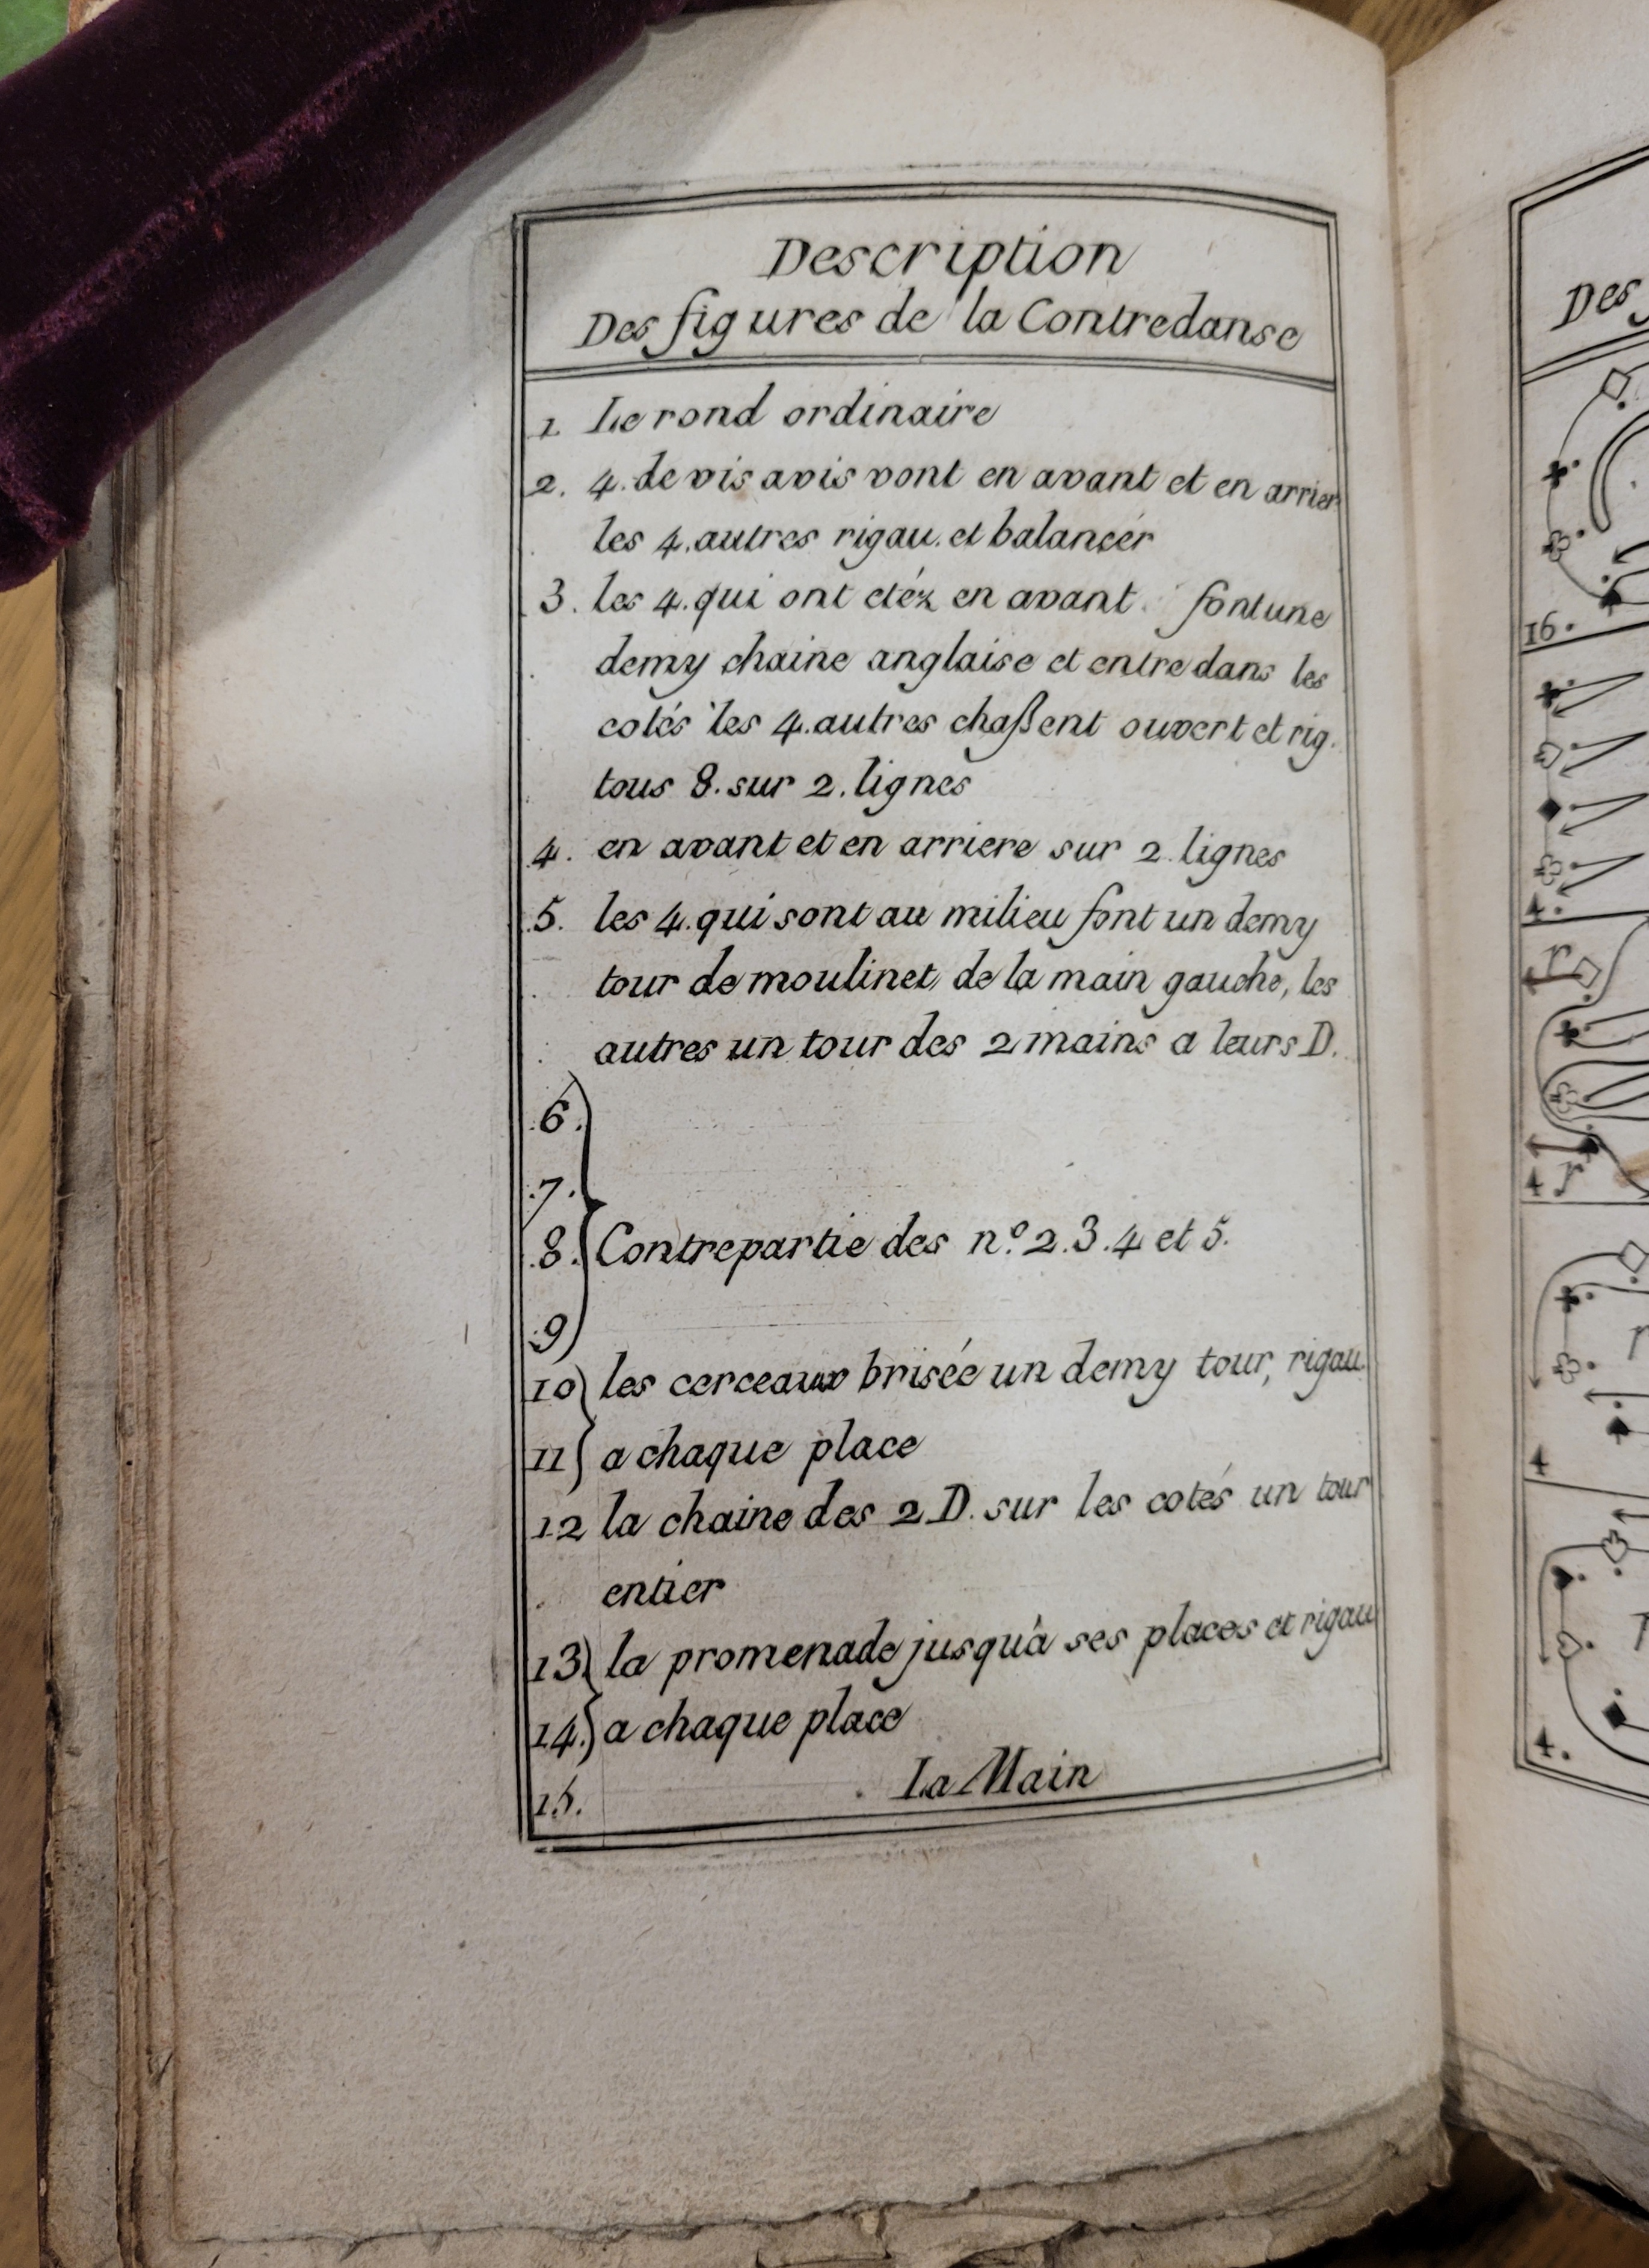 Description
Des figures de la Contredanse
1. Le rond ordinaire
2. 4. de vis avis vont en avant et en arrier
les 4. autres rigau. et balancér
3. les 4. qui ont etéz en avant. font une
demy chaine anglaise et entre dans les
cotés les 4. autres chaßent ouvert et rig.
tous 8. sur 2. lignes
4. en avant et en arriere sur 2. lignes
5. les 4. qui sont au milieu font un demy
tour de moulinet de la main gauche, les
autres un tour des 2 mains a leurs D.
6.
7.
8. Contrepartie des n.º 2.3.4 et 5.
9
10 les cerceaux brisée un demy tour, rigau.
11 a chaque place
12 la chaine des 2 D. sur les cotés un tour
entier
13 la promenade jusqu'à ses places et rigau
14. a chaque place
15. La Main
Des
16.
4.
r
4 r
4
4.